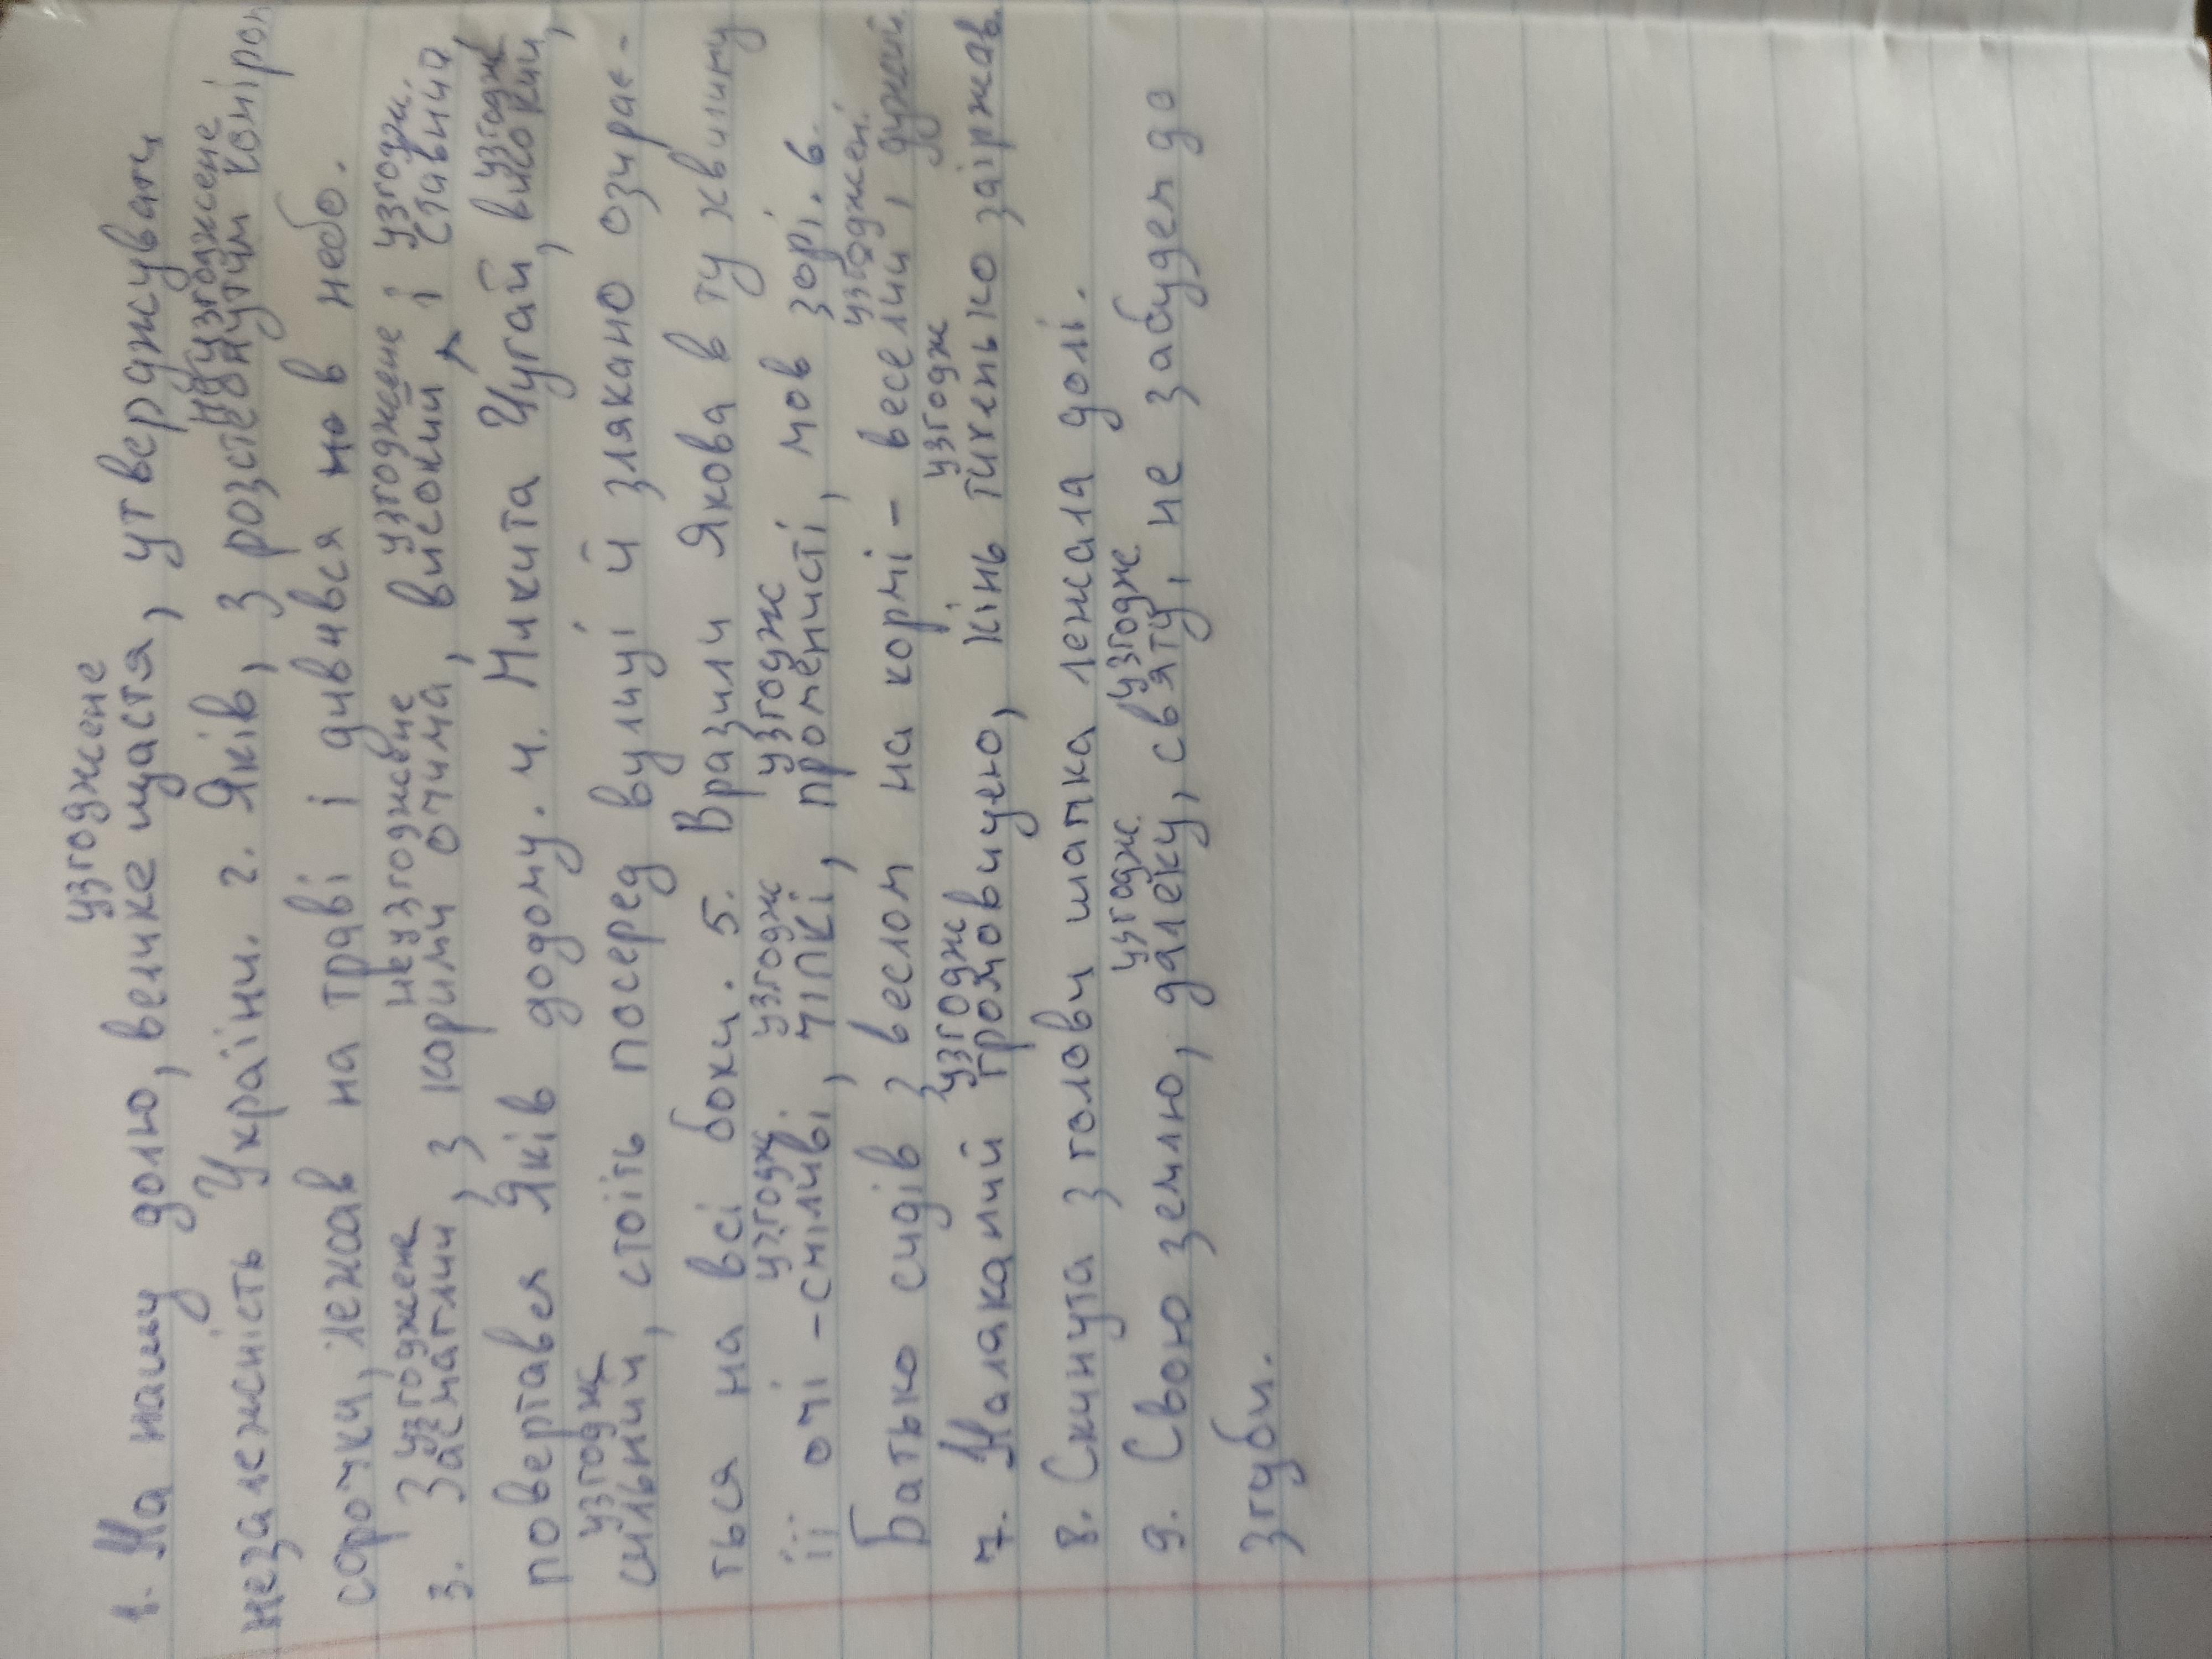 узгоджене
1. На нашу долю, велике щастя, утверджувати
неузгоджене узгоджене
незалежність України. 2. Яків, з розстебнутим коміром
сорочки, лежав на траві і дивився но в небо.
узгоджене неузгоджене узгоджене узгодж.
3. Засмаглий, з карими очима, високий і ставний,
узгодж
повертався Яків додому. 4. Микита Чугай, високий,
узгодж
сильний, стоїть посеред вулиці й злякано озирає-
ться на всі боки. 5. Вразили Якова в ту хвилину
узгодж. узгодж узгодж
її очі - сміливі, чіпкі, променисті, мов зорі. 6.
узгоджені
Батько сидів з веслом на кормі - веселий, дужий.
узгодж узгодж
7. Налаканий громовицею, кінь тихенько заіржав.
8. Скинута з голови шапка лежала долі.
узгодж. узгодж узгодж.
9. Свою землю, далеку, святу, не забудеп до
згуби.